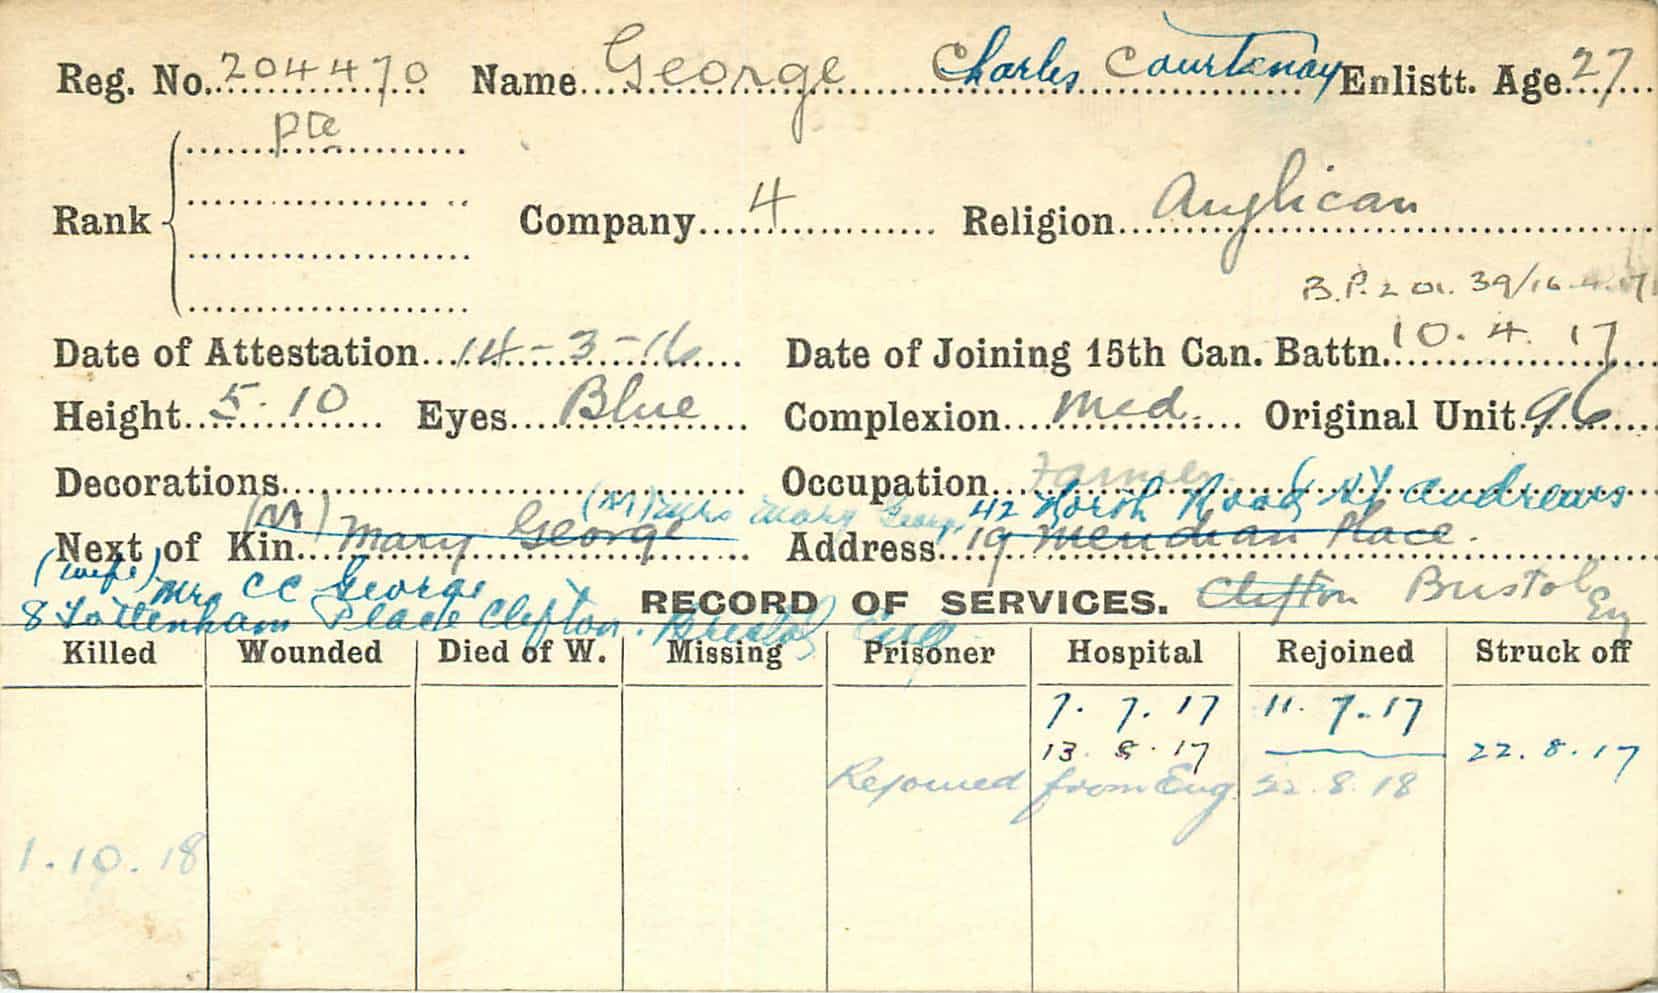 Reg. No. 204470 Name George Charles Courtenay Enlistt. Age 27
Pte
Rank Company 4 Religion Anglican
B.P.2 01. 39/16.4.17
Date of Attestation 14-3-16 Date of Joining 15th Can. Battn. 10.4.17
Height 5.10 Eyes Blue Complexion Med. Original Unit 96
Decorations Occupation Farmer
(M) (M) Mrs Mary George 42 North Road St Andrews
Next of Kin Mary George Address 19 Meridian Place.
(wife) Mrs CC George Clifton Bristol Eng
8 Tottenham Place Clifton. Bristol Eng
RECORD OF SERVICES.
Killed Wounded Died of W. Missing Prisoner Hospital Rejoined Struck off
7. 7. 17 11. 7. 17
13. 8. 17 22. 8. 17
Rejoined from Eng. 22.8.18
1.10.18